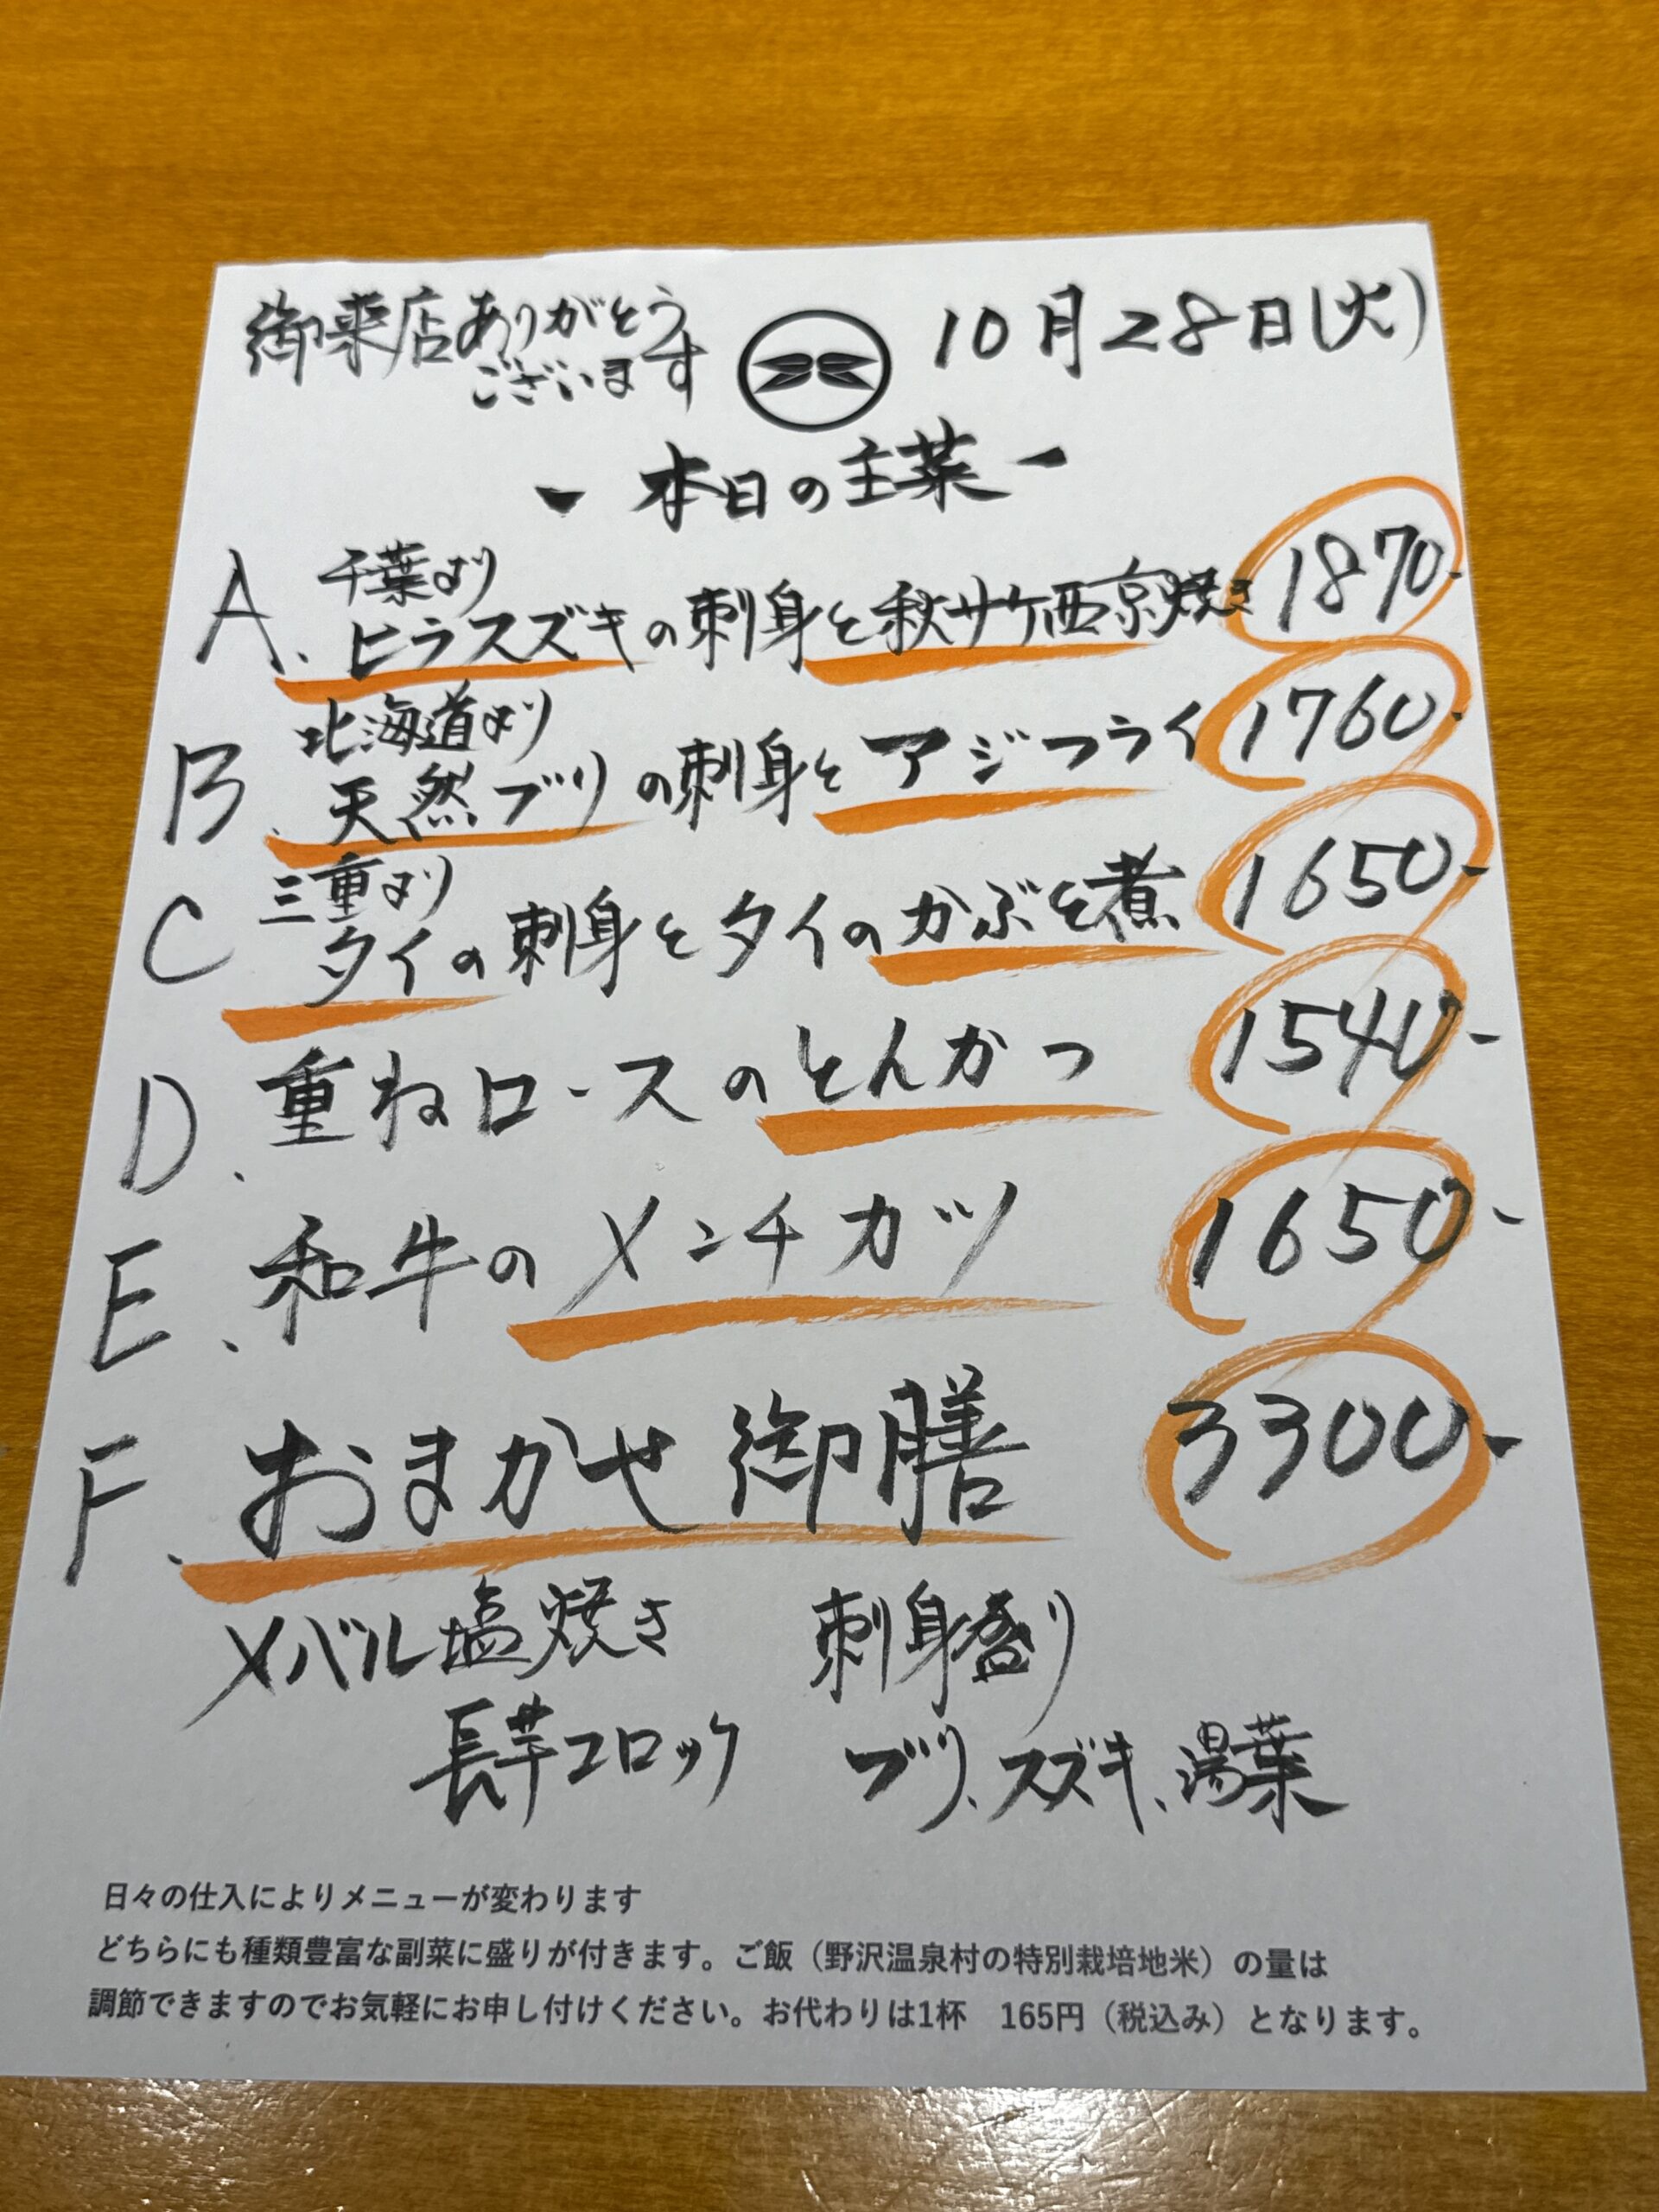 御来店ありがとう
ございます
10月28日(火)
- 本日の主菜 -
A. 千葉より
ヒラスズキの刺身と秋サケ西京焼き 1870-
B. 北海道より
天然ブリの刺身とアジフライ 1760-
C 三重より
タイの刺身とタイのかぶと煮 1650-
D. 重ねロースのとんかつ 1540-
E. 和牛のメンチカツ 1650-
F. おまかせ御膳 3300-
メバル塩焼き 刺身盛り
長芋コロッケ ブリ、スズキ、湯葉
日々の仕入によりメニューが変わります
どちらにも種類豊富な副菜に盛りが付きます。ご飯（野沢温泉村の特別栽培地米）の量は
調節できますのでお気軽にお申し付けください。お代わりは1杯 165円（税込み）となります。